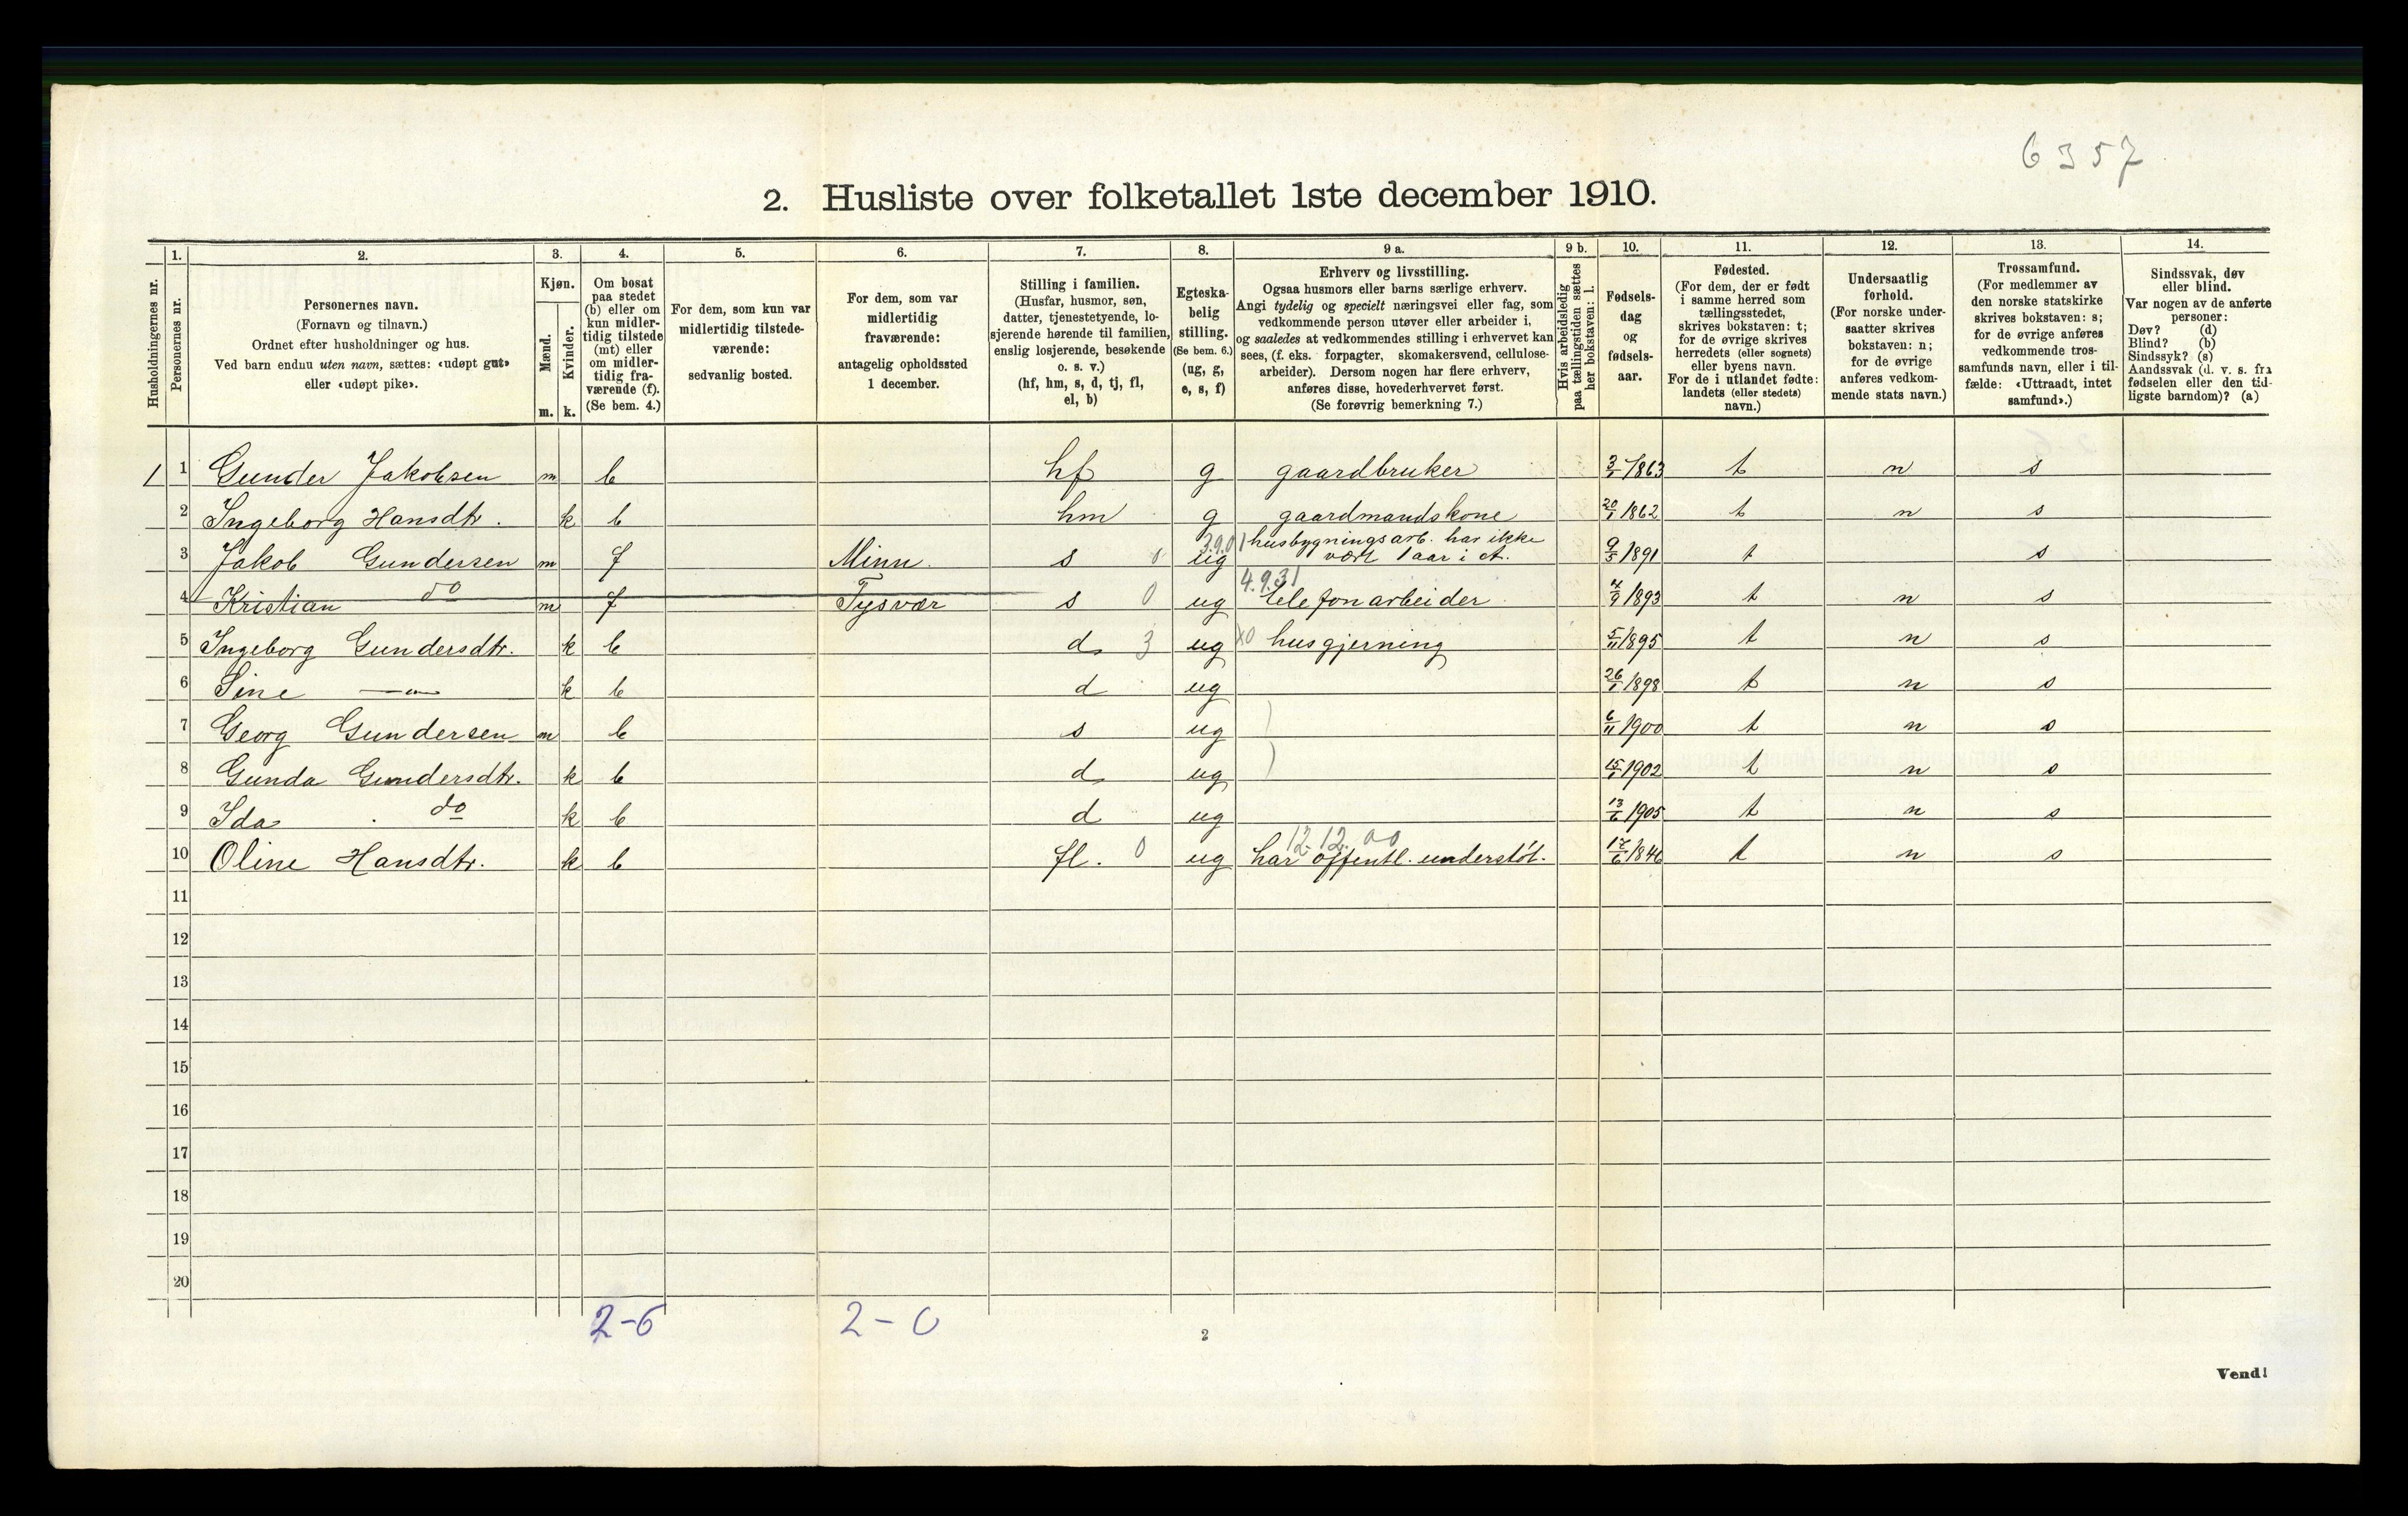 6357
2. Husliste over folketallet 1ste december 1910.
Husholdningernes nr.
1.
Personernes nr.
2.
Personernes navn.
(Fornavn og tilnavn.)
Ordnet efter husholdninger og hus.
Ved barn endnu uten navn, sættes: «udøpt gut»
eller «udøpt pike».
3.
Kjøn.
Mænd.
Kvinder.
m. k.
4.
Om bosat
paa stedet
(b) eller om
kun midler-
tidig tilstede
(mt) eller
om midler-
tidig fra-
værende (f).
(Se bem. 4.)
5.
For dem, som kun var
midlertidig tilstede-
værende:
sedvanlig bosted.
6.
For dem, som var
midlertidig
fraværende:
antagelig opholdssted
1 december.
7.
Stilling i familien.
(Husfar, husmor, søn,
datter, tjenestetyende, lo-
sjerende hørende til familien,
enslig losjerende, besøkende
o. s. v.)
(hf, hm, s, d, tj, fl,
el, b)
8.
Egteska-
belig
stilling.
(Se bem. 6.)
(ug, g,
e, s, f)
9 a.
Erhverv og livsstilling.
Ogsaa husmors eller barns særlige erhverv.
Angi tydelig og specielt næringsvei eller fag, som
vedkommende person utøver eller arbeider i,
og saaledes at vedkommendes stilling i erhvervet kan
sees, (f. eks. forpagter, skomakersvend, cellulose-
arbeider). Dersom nogen har flere erhverv,
anføres disse, hovederhvervet først.
(Se forøvrig bemerkning 7.)
9 b.
Hvis arbeidsledig
paa tællingstiden sættes
her bokstaven: l.
10.
Fødsels-
dag
og
fødsels-
aar.
11.
Fødested.
(For dem, der er født
i samme herred som
tællingsstedet,
skrives bokstaven: t;
for de øvrige skrives
herredets (eller sognets)
eller byens navn.
For de i utlandet fødte:
landets (eller stedets)
navn.)
12.
Undersaatlig
forhold.
(For norske under-
saatter skrives
bokstaven: n;
for de øvrige
anføres vedkom-
mende stats navn.)
13.
Trossamfund.
(For medlemmer av
den norske statskirke
skrives bokstaven: s;
for de øvrige anføres
vedkommende tros-
samfunds navn, eller i til-
fælde: «Uttraadt, intet
samfund».)
14.
Sindssvak, døv
eller blind.
Var nogen av de anførte
personer:
Døv? (d)
Blind? (b)
Sindssyk? (s)
Aandssvak (d. v. s. fra
fødselen eller den tid-
ligste barndom)? (a)
1 1 Gunder Jakobsen m b hf g gaardbruker 3/1 1863 t n s
2 Ingeborg Hansdtr. k b hm g gaardmandskone 20/1 1862 t n s
3 Jakob Gundersen m f Minn. s ug husbygningsarb. har ikke
vært 1 aar i A. 9/5 1891 t s
4 Kristian do m f Tysvær s 0 ug 4.9.31 telefonarbeider 4/9 1893 t n s
5 Ingeborg Gundersdtr. k b d 3 ug husgjerning 5/11 1895 t n s
6 Sine —"— k b d ug 26/1 1898 t n s
7 Georg Gundersen m b s ug 6/11 1900 t n s
8 Gunda Gundersdtr. k b d ug 15/1 1902 t n s
9 Ida do k b d ug 13/6 1905 t n s
10 Oline Hansdtr. k b fl. 0 ug 12.12.00 har offentl. understøt. 17/6 1846 t n s
11
12
13
14
15
16
17
18
19
20
2-6 2-0
2
Vend!